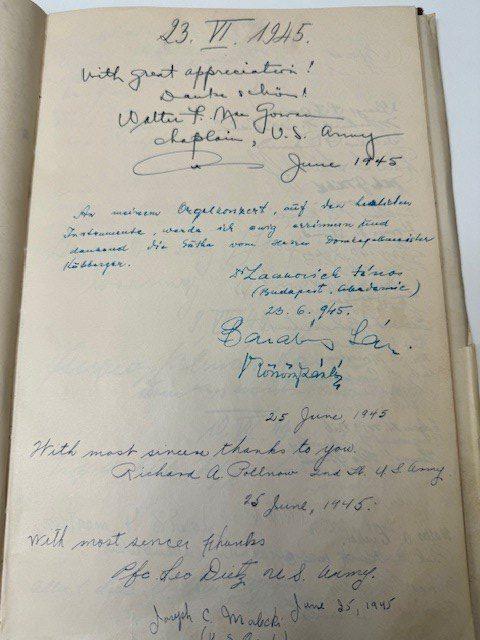 23. VI. 1945.
With great appreciation!
Danke schön!
Walter F. Mc Gowan
Chaplain, U.S. Army
June 1945
An meinem Orgelkonzert, auf den
Instrumente, werde ich ewig errinnern und
dankend die Güte vom Herrn Domkapellmeister
János
(Budapest, Akademie)
23. 6. 945.
Barabás
László
25 June 1945
With most sincere thanks to you.
Richard A Pollnow 2nd Lt. U S Army.
25 June, 1945.
With most sencer thanks
Pfc. Leo Dietz U. S. Army.
Joseph C. Malecki June 25, 1945